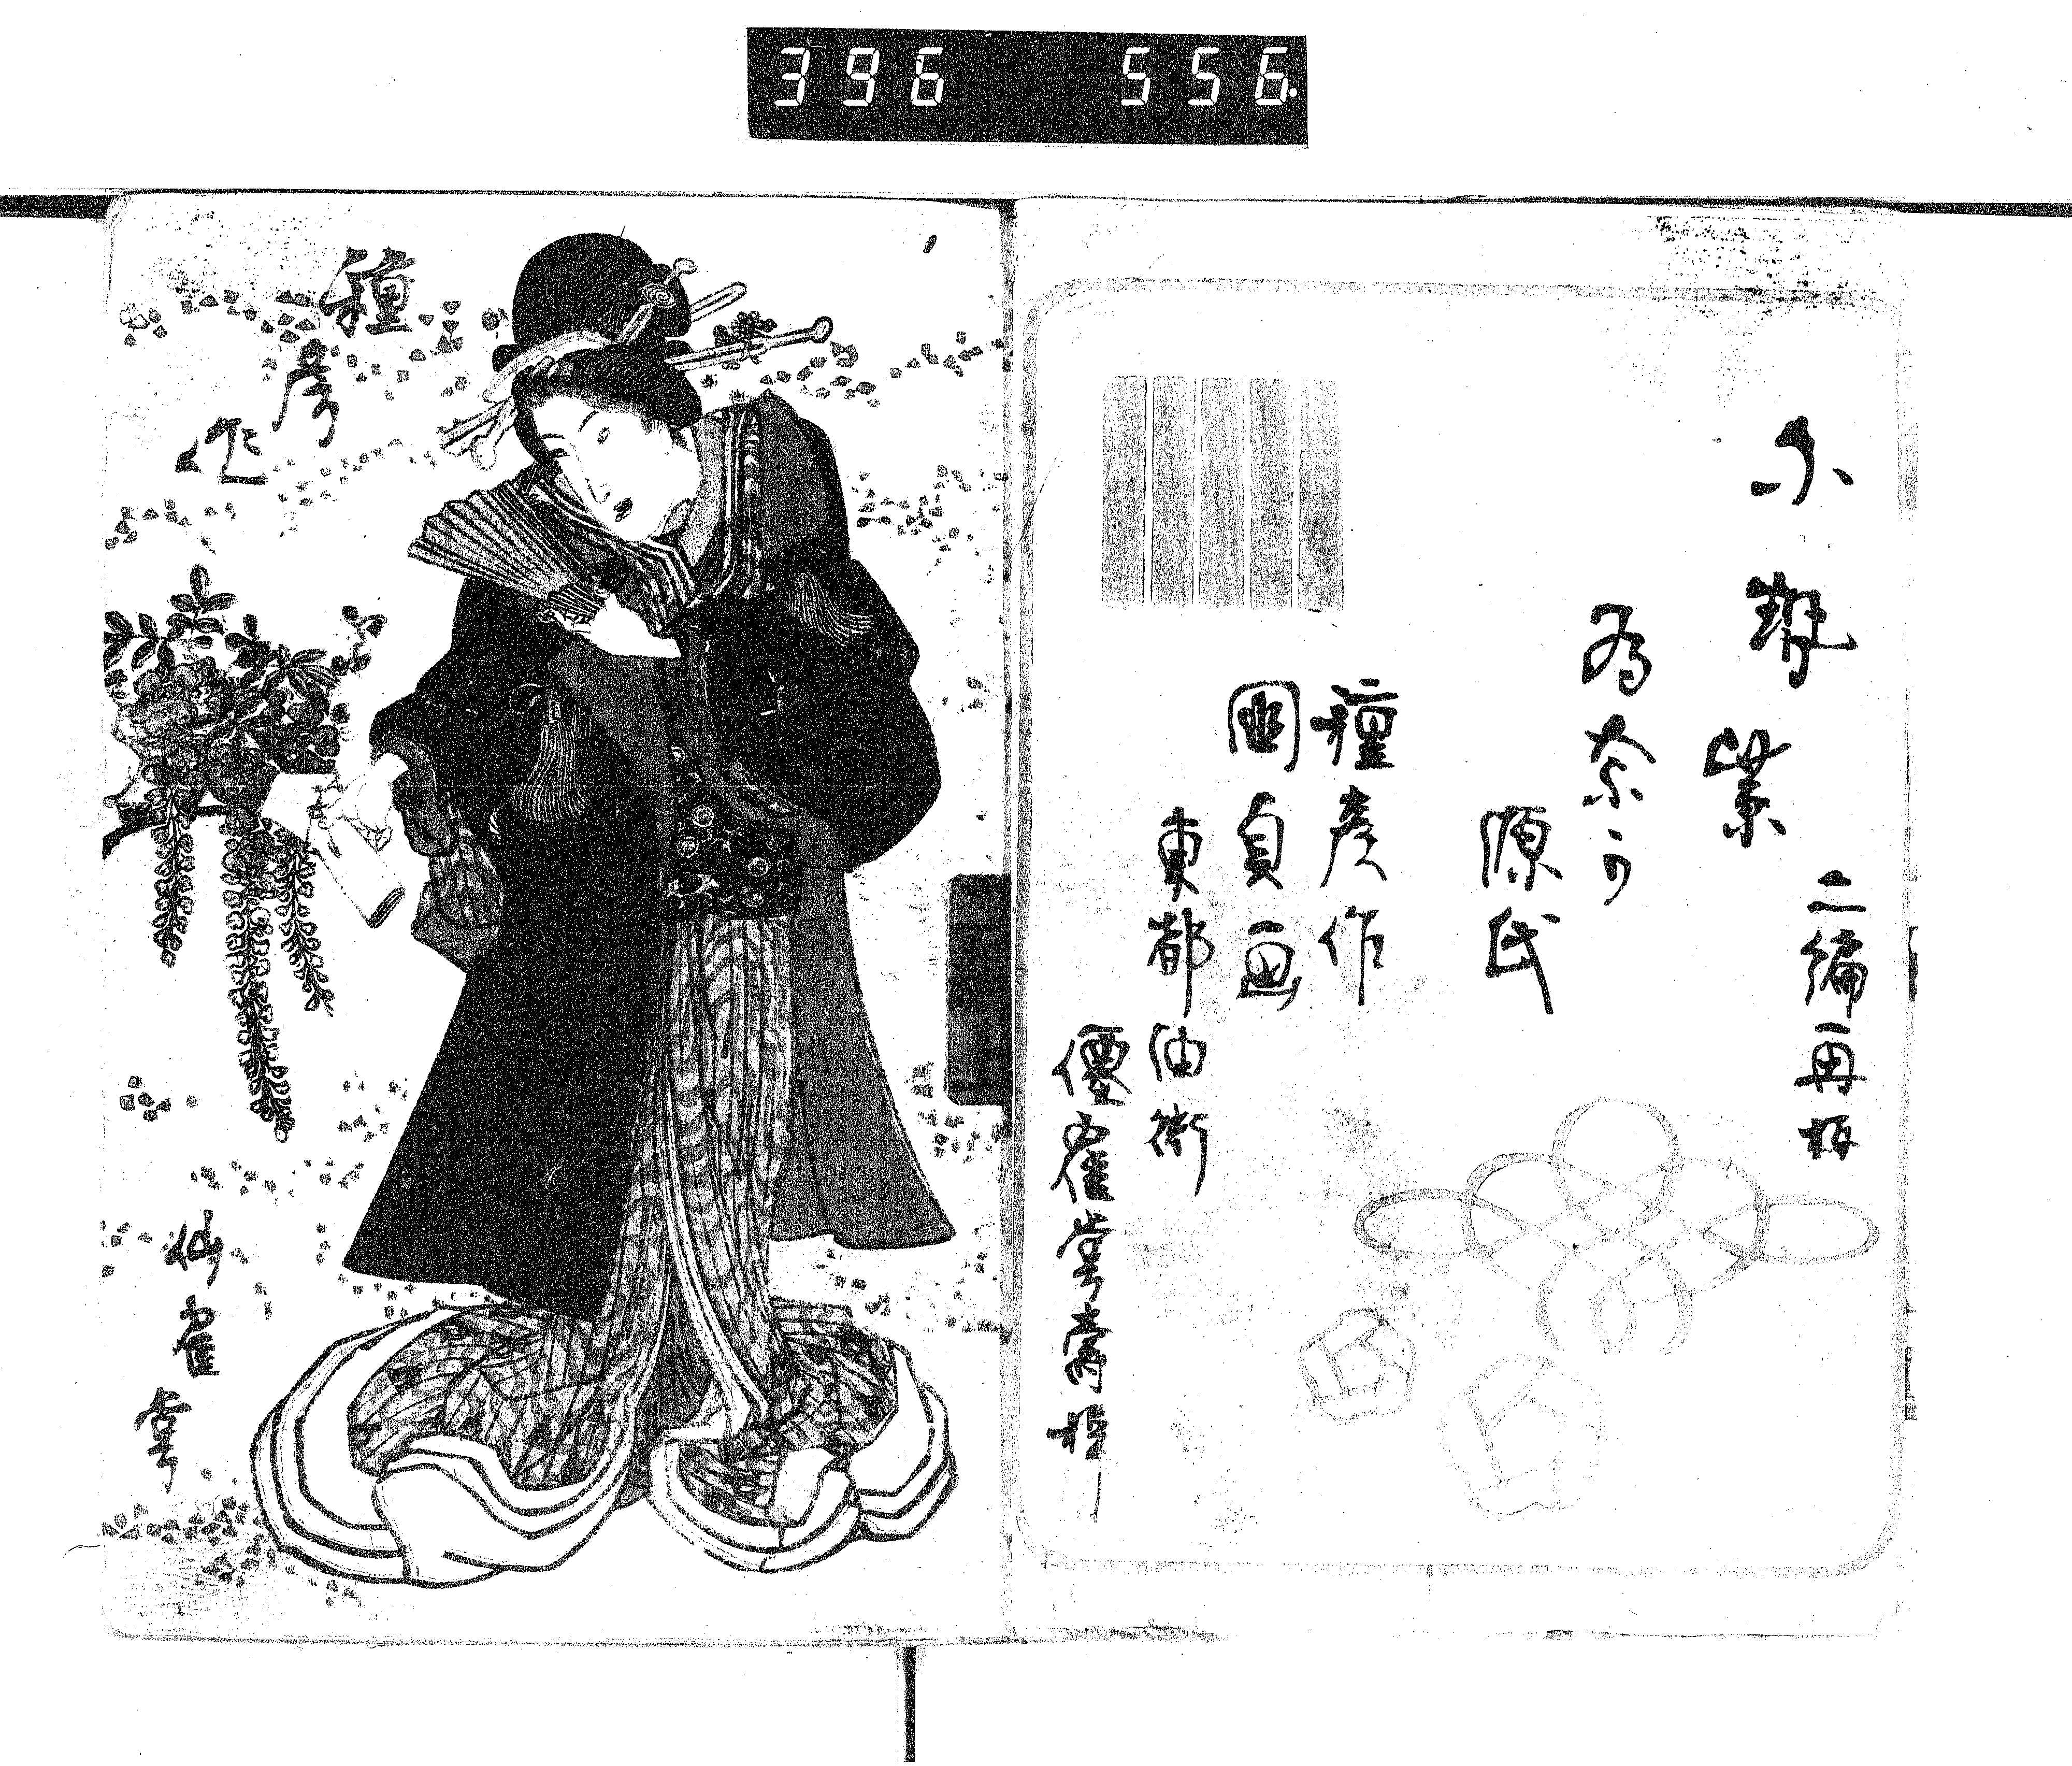 396 556.
二編再板
にせ紫
為奈か
源氏
種彦作
國貞画
東都油街
僊寉堂壽梓
種
彦
作
仙
寉
堂